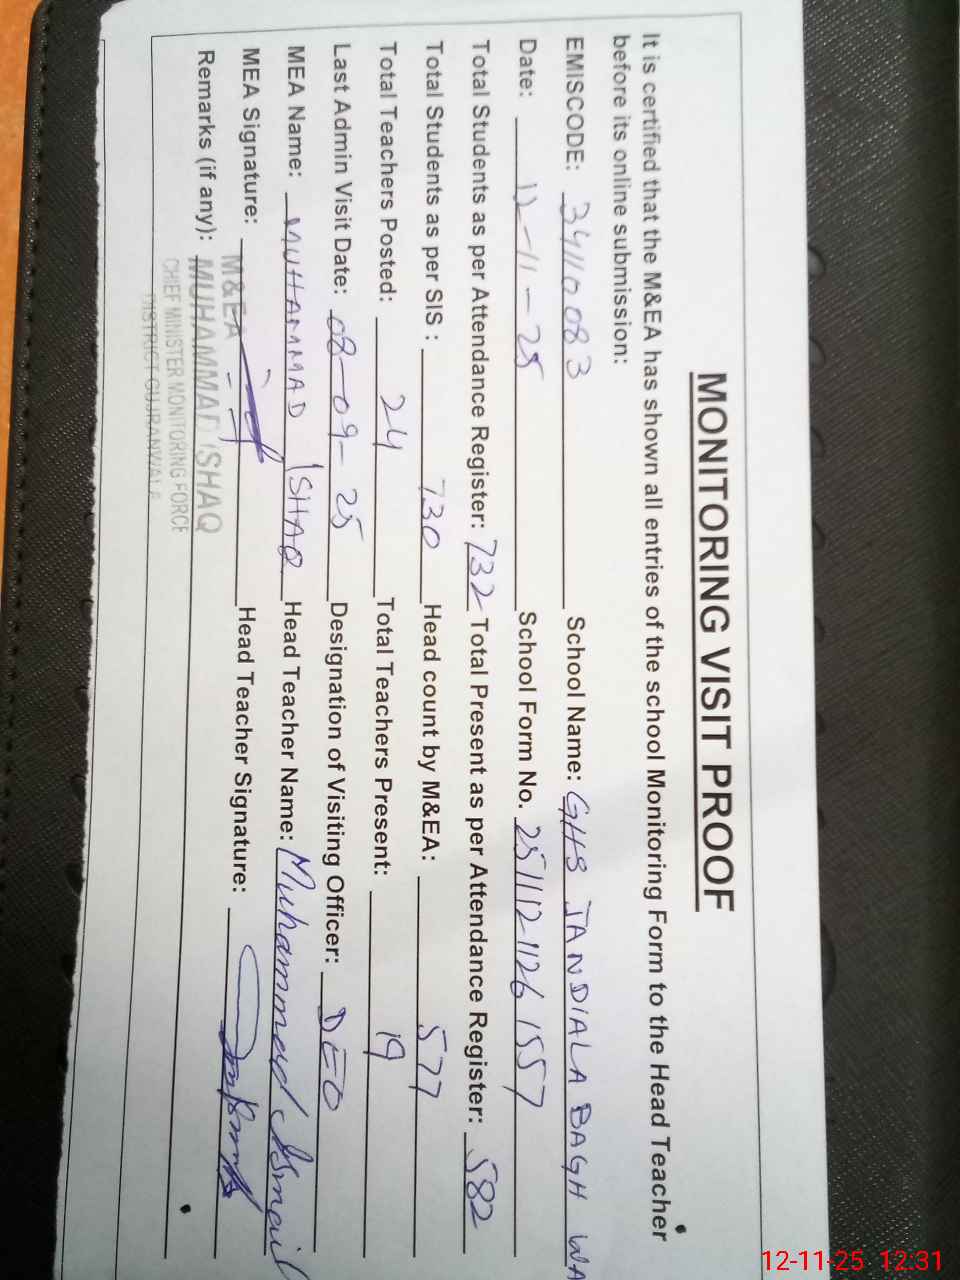 MONITORING VISIT PROOF
It is certified that the M&EA has shown all entries of the school Monitoring Form to the Head Teacher
before its online submission:
EMISCODE: 34110083 School Name: GHS JANDIALA BAGH WA
Date: 12-11-25 School Form No. 25111211261557
Total Students as per Attendance Register: 732 Total Present as per Attendance Register: 582
Total Students as per SIS : 730 Head count by M&EA: 577
Total Teachers Posted: 24 Total Teachers Present: 19
Last Admin Visit Date: 08-09-25 Designation of Visiting Officer: DEO
MEA Name: MUHAMMAD ISHAQ Head Teacher Name: Muhammad Ismail
MEA Signature: Head Teacher Signature:
Remarks (if any):
M&EA
MUHAMMAD ISHAQ
CHIEF MINISTER MONITORING FORCE
DISTRICT GUJRANWALA
12-11-25 12:31